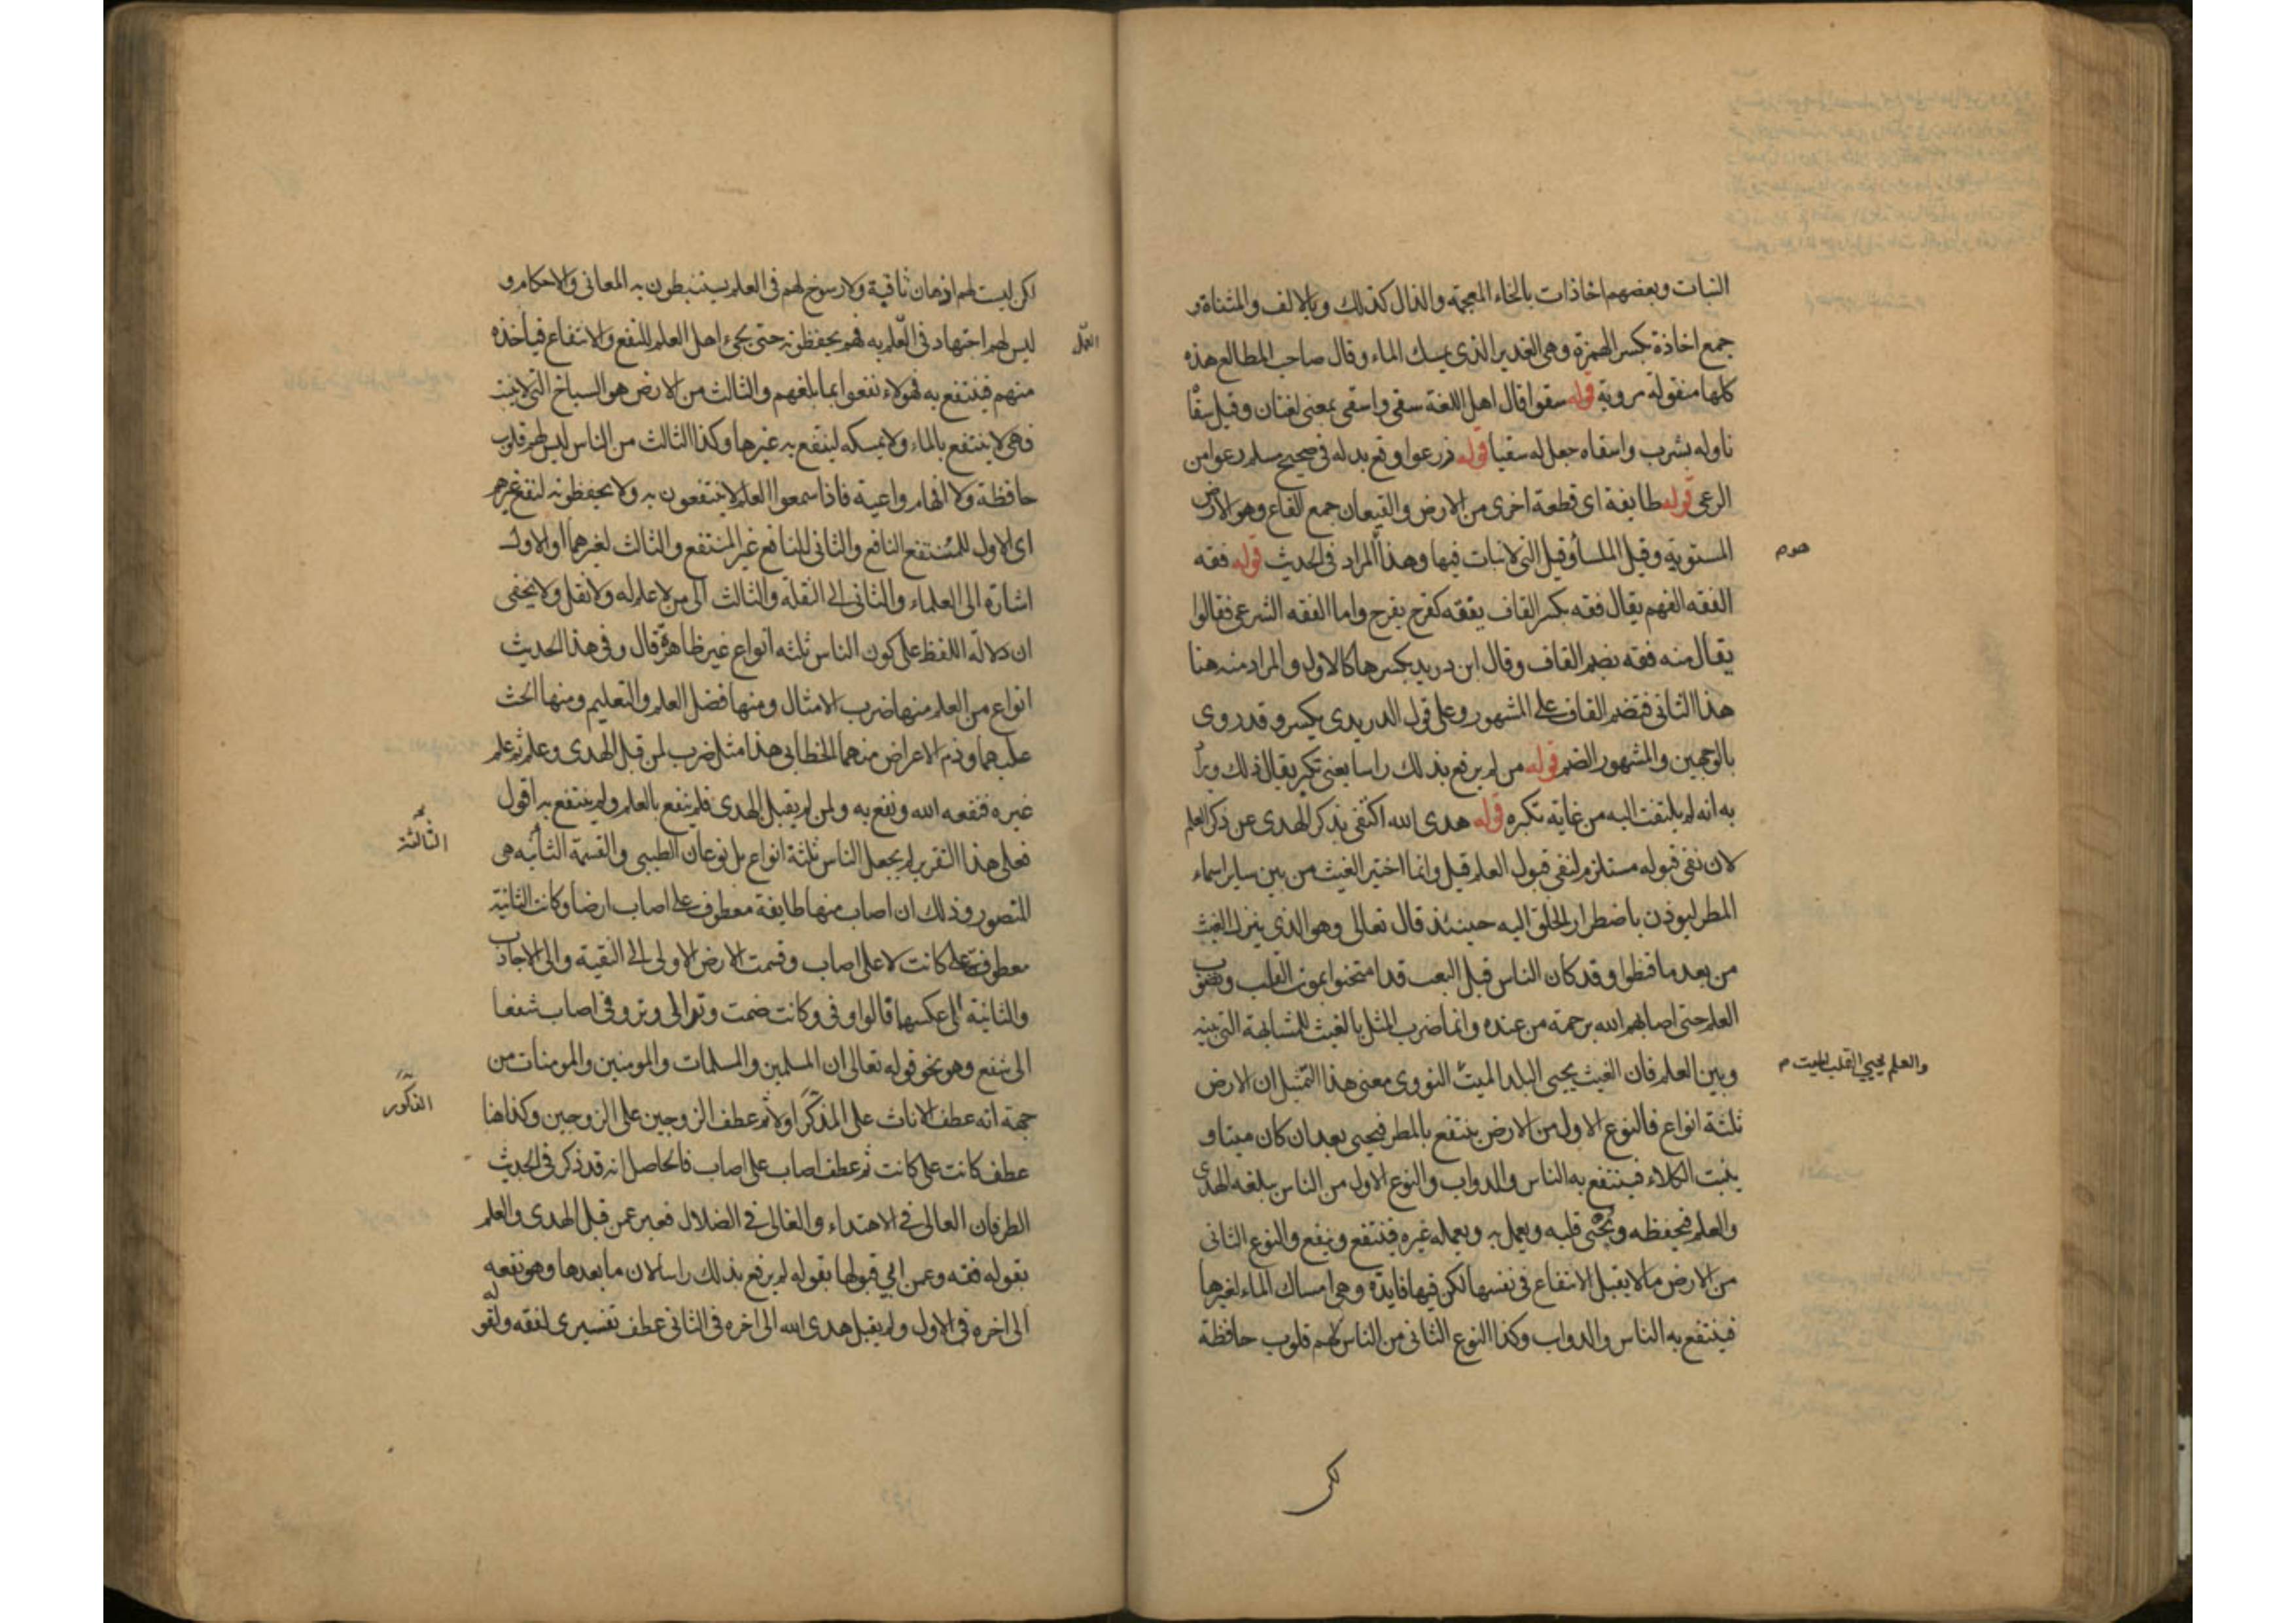 النبات وبعضهم اخاذات بالخاء المعجمة والذال كذلك وبالالف والمثناة و
جمع اخاذة بكسر الهمزة وهى الغدير الذى يمسك الماء وقال صاحب المطالع هذه
كلها منقولة مروية قوله سقوا قال اهل اللغة سقى واسقى بمعنى لغتان وقيل سقا
ناوله بشرب واسقاه جعل له سقيا قوله زرعوا وقع بدله فى صحيح مسلم رعوا من
الرعى قوله طايفة اى قطعة اخرى من الارض والقيعان جمع القاع وهو الارض
المستوية وقيل الملسا وقيل التى لا نبات فيها وهذا المراد فى الحديث قوله فقه
الفقه الفهم يقال فقه بكسر القاف يفقه كفرح يفرح واما الفقه الشرعى فقالوا
يقال منه فقه بضم القاف وقال ابن دريد بكسرها كالاول والمراد منه هنا
هذا الثانى فتضم القاف على المشهور وعلى قول الدريدى يكسر وقد روى
بالوجهين والمشهور الضم قوله من لم يرفع بذلك راسا يعنى تكبر يقال ذلك ويراد
به انه لم يلتفت اليه من غاية تكبره قوله هدى الله اكتفى بذكر الهدى عن ذكر العلم
لان نفى قبوله مستلزم لنفى قبول العلم قيل وانما اختير الغيث من بين ساير اسماء
المطر ليوذن باضطرار الخلق اليه حينئذ قال تعالى وهو الذى ينزل الغيث
من بعد ما قنطوا وقد كان الناس قبل البعث قد امتحنوا بموت القلب ونضوب
العلم حتى اصابهم الله برحمة من عنده وانما ضرب المثل بالغيث للمشابهة التى بينه
وبين العلم فان الغيث يحيى البلد الميت النووى معنى هذا التمثيل ان الارض
والعلم يحيي القلب الميت م
ثلثة انواع فالنوع الاول من الارض ينتفع بالمطر فيحيى بعد ان كان ميتا و
ينبت الكلاء فينتفع به الناس والدواب والنوع الاول من الناس يبلغه الهدى
والعلم فيحفظه ويحيى قلبه ويعمل به ويعمله غيره فينتفع وينفع والنوع الثانى
من الارض ما لا يقبل الانتفاع فى نفسها لكن فيها فايدة وهى امساك الماء لغيرها
فينتفع به الناس والدواب وكذا النوع الثانى من الناس لهم قلوب حافظة
لكن
لكن ليست لهم اذهان ثاقبة ولا رسوخ لهم فى العلم يستنبطون به المعانى والاحكام و
ليس لهم اجتهاد فى العلم به فهم يحفظونه حتى يجىء اهل العلم للنفع والانتفاع فياخذه
العمل
منهم فينتفع به فهولاء نفعوا بما بلغهم والثالث من الارض هو السباخ التى لا ينبت
فهى لا ينتفع بالماء ولا يمسكه لينتفع به غيرها وكذا الثالث من الناس ليس لهم قلوب
حافظة ولا افهام واعية فاذا سمعوا العلم لا ينتفعون به ولا يحفظونه لنفع غيرهم
اى الاول للمنتفع النافع والثانى للنافع غير المنتفع والثالث لغيرهما او الاول
اشارة الى العلماء والثانى الى النقلة والثالث الى من لا علم له ولا نقل ولا يخفى
ان دلالة اللفظ على كون الناس ثلثه انواع غير ظاهرة قال وفى هذا الحديث
انواع من العلم منها ضرب الامثال ومنها فضل العلم والتعليم ومنها الحث
عليهما وذم الاعراض منهما الخطابى هذا مثل ضرب لمن قبل الهدى وعلم ثم علم
غيره فنفعه الله ونفع به ولمن لم يقبل الهدى فلم ينفع بالعلم ولم ينتفع به اقول
فعلى هذا التقرير لم يجعل الناس ثلثة انواع بل نوعان الطيبى والقسمة الثانيه هى
الثالثة
المتصور وذلك ان اصاب منها طايفة معطوف على اصاب ارضا وكانت الثانية
معطوفة على كانت لا على اصاب وقسمت الارض الاولى الى النقية والى الاجادب
والثانية الى عكسها قالوا وفى وكانت ضمت وترا الى وتر وفى اصاب شفعا
الى شفع وهو نحو قوله تعالى ان المسلمين والمسلمات والمومنين والمومنات من
جهة انه عطف الاناث على المذكر اولا ثم عطف الزوجين على الزوجين وكذا هنا
الذكور
عطف كانت على كانت ثم عطف اصاب على اصاب فالحاصل انه قد ذكر فى الحديث
الطرفان العالى فى الاهتداء والغالى فى الضلال فعبر عمن قبل الهدى والعلم
بقوله فقه وعمن ابى قبولها بقوله لم يرفع بذلك راسا لان ما بعدها وهو نفعه
الى اخره فى الاول ولم يقبل هدى الله الى اخره فى الثانى عطف تفسيرى لفقه ولقوله